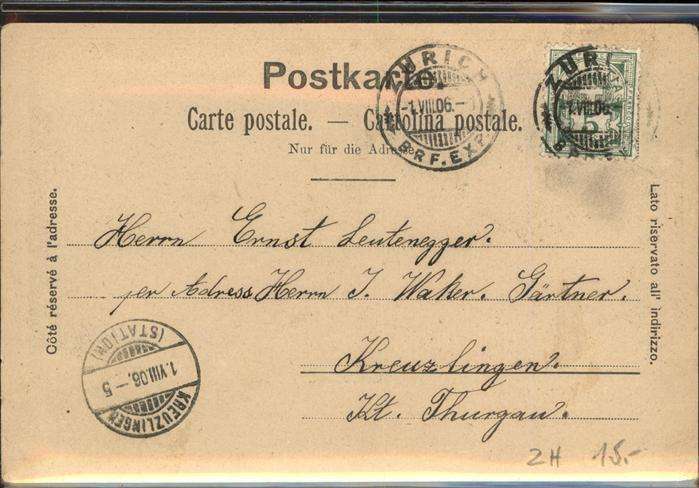 Postkarte.
Carte postale. — Cartolina postale.
Nur für die Adresse.
Côté réservé à l'adresse.
Lato riservato all' indirizzo.
ZÜRICH
-1.VIII.06.-
BRF.EXP.
ZÜRICH
-1.VIII.06.
5
Herrn Ernst Leutenegger.
per Adress Herrn J. Waker. Gärtner.
Kreuzlingen.
Kt. Thurgau.
KREUZLINGEN
1.VIII.06.-5
(STATION)
ZH 15.-